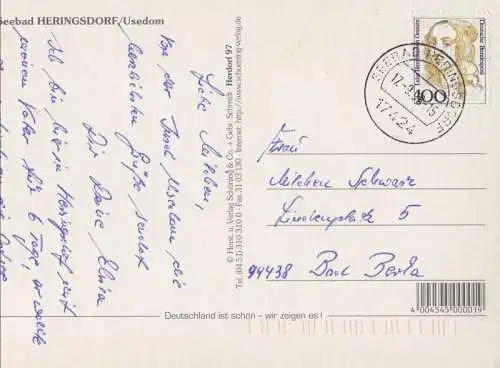 Seebad HERINGSDORF/Usedom
Liebe
Von der Insel Usedom die
herzlichsten Grüße sendet
Dir Deine
Ich bin hier in Heringsdorf mit
meinem Vater für 6 Tage, er wollte
© Herst. u. Verlag Schöning & Co. + Gebr. Schmidt · Herdorf 97
Tel. (04 51) 310 310 0 · Fax 31 03 130 · Internet: http://www.schoening-verlag.de
Deutsche Bundespost
100
SEEBAD HERINGSDORF
17424
Frau
Milchen Schwarz
Lindenplatz 5
94438 Bad Berka
Deutschland ist schön - wir zeigen es!
4 004545 000019